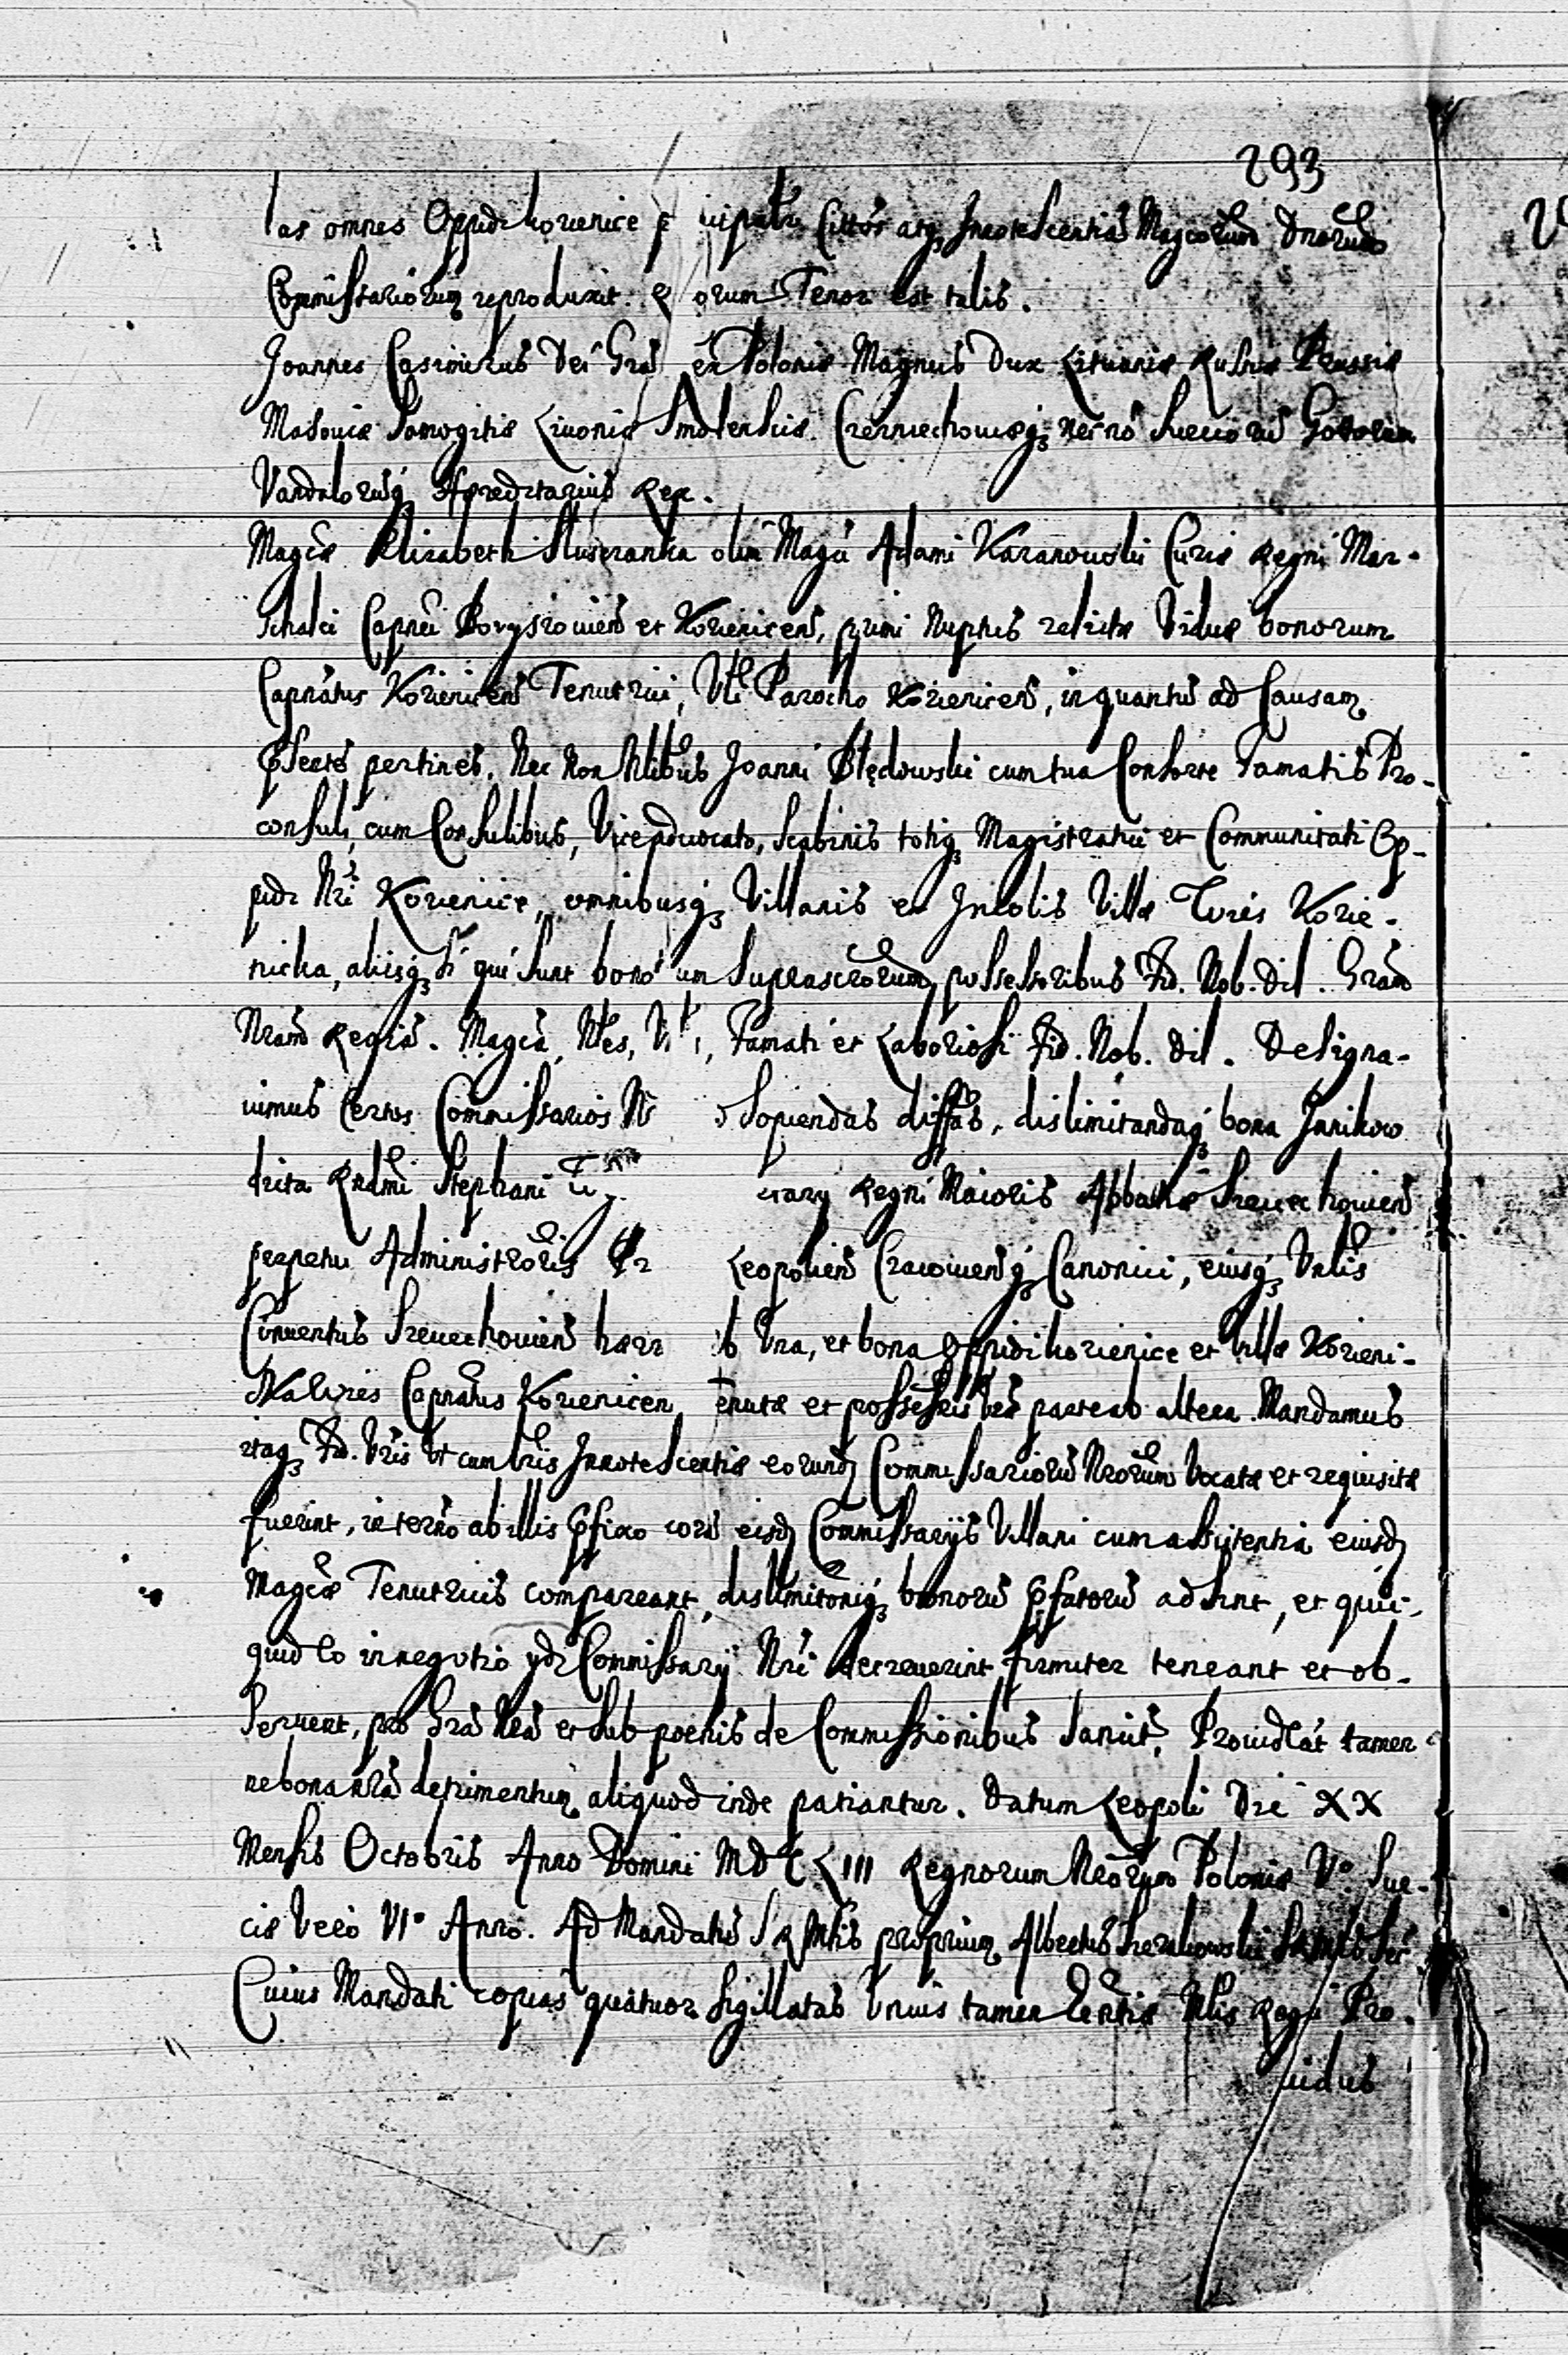 293
las omnes Oppidi Kozienice p cipalem Cittõs atq Innotescentiã Magcorum Dnorum
Commissariorum reproduxit. Q orum Tenor est talis.
Joannes Casimirus Dei Gra ex Poloniæ Magnus Dux Lituaniæ Russiæ Prussiæ
Masouiæ Samogitiæ Liuoniæ Smolensciæ Czerniechouięq nec nõ Sueconũ Gotorum
Vandalorũq Hæreditarius Rex.
Magcæ Elizabeth Sluszanka olim Magci Adami Kazanowski Curiæ Regni Mar-
schalci Capnei Borysouieñ et Kozieniceñ, primi Nuptus relictæ Viduæ bonorum
Capnatus Kozieniceñ Tenutrici, Vli Parocho Kozieniceñ, in quantũ ad Causam
pñtes pertinet. Nec Non Nlibus Joanni Błędowski cum sua Consorte Famatis Pro-
consuli, cum Consulibus, Viceaduocato, Scabinis totiq Magistratui et Communitati Op-
pidi Nri Kozienice, omnibusq Villanis et Incolis Villæ Kozie-
nicka, aliisq si qui sunt bono um suprascrõrum possessoribus Fid. Nob. Dil. Gram
Nram Regiã. Magca, Nles, V , Famati et Laboriosi Fid. Nob. Dil. Designa-
uimus Certos Commissarios N d sopiendas diffas, dislimitandaq bona Janikow
dicta Rndmi Stephani tary Regni Maioris Abbatiæ Sieciechouieñ
perpetui Administrõris Leopolieñ Cracouieñq Canonici, eiusq Vnlis
Conuentus Sieciechouieñ hær b Vna, et bona Oppidi Kozienice et Villæ Kozieni-
Capnatus Kozienicen Tenutæ et possess parte ab altera. Mandamus
itaq Fid. Vris Vt cum Lris Innotescentiæ eorund Commissariorũ Nrorum Vocatæ et requisitæ
fuerint, in termõ ab illis pfixo corã eisd Commissarijs Villani cum assistentia eiusd
Magcæ Tenutricis compareant, dislimitõniq bonorũ pfatorũ adsint, et quic-
quid Eo in negotio yd Commissarij Nri decreuerint firmiter teneant et ob-
seruent, pro Gra Nra et sub poenis de Commissionibus sancit, Prouideãt tamen
ne bona nra detrimentum aliquod inde patiantur. Datum Leopoli Die XX
Mensis Octobris Anno Domini MDCLIII Regnorum Nrorum Poloniæ V° Sue-
ciæ Vero VI° Anno. Ad Mandatũ S R Mtis proprium Albertus
Cuius Mandati copias quatuor sigillatas Vnius tamen tentis Nlis Regni Pro-
uidus